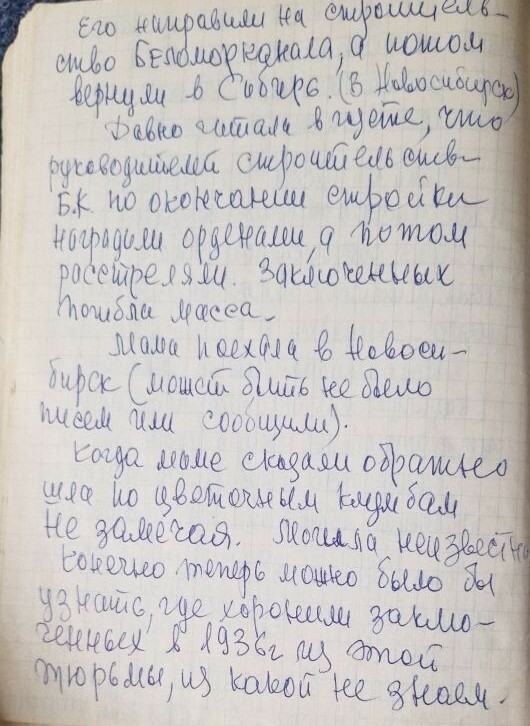 Его направили на строитель-
ство Беломорканала, а потом
вернули в Сибирь. (В Новосибирск)
Давно читала в газете, что
руководителей строительств-
Б.К. по окончании стройки
наградили орденами, а потом
расстреляли. Заключенных
погибла масса.
Мама поехала в Новоси-
бирск (может быть не было
писем или сообщили).
Когда маме сказали обратно
шла по цветочным клумбам
не замечая. Могила неизвестна
Конечно теперь можно было бы
узнать, где хоронили заклю-
ченных в 1936г из этой
тюрьмы, из какой не знаем.